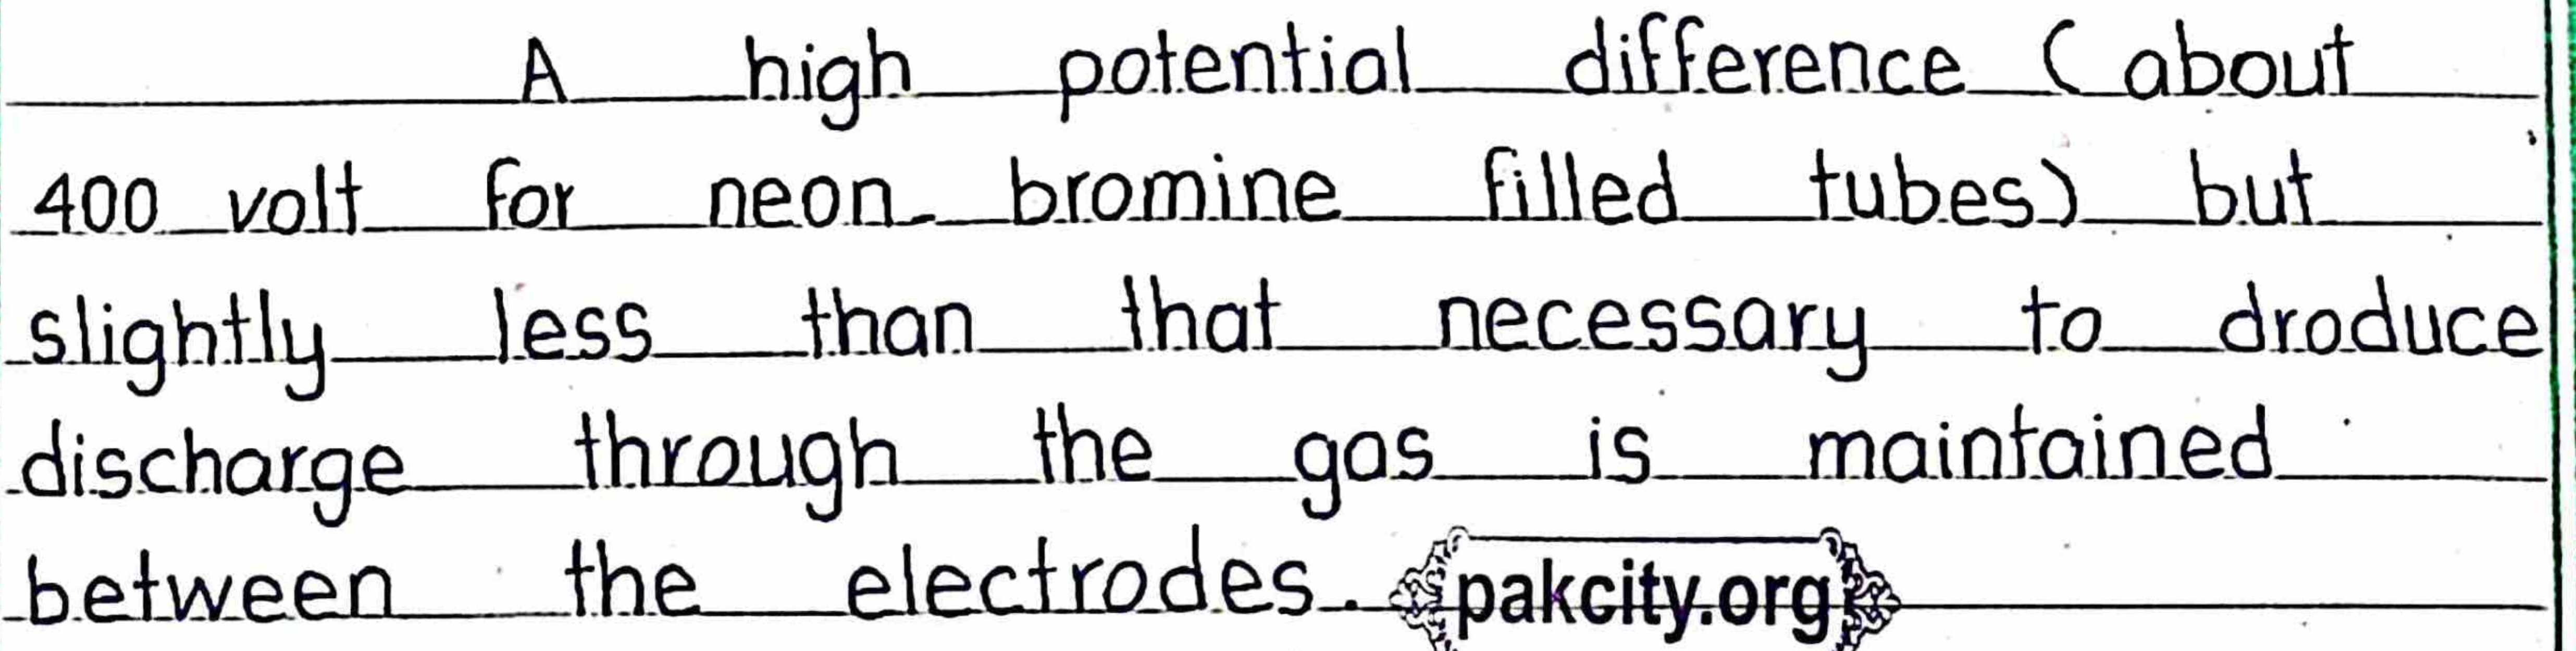 A high potential difference (about
400 volt for neon bromine filled tubes) but
slightly less than that necessary to droduce
discharge through the gas is maintained
between the electrodes. pakcity.org